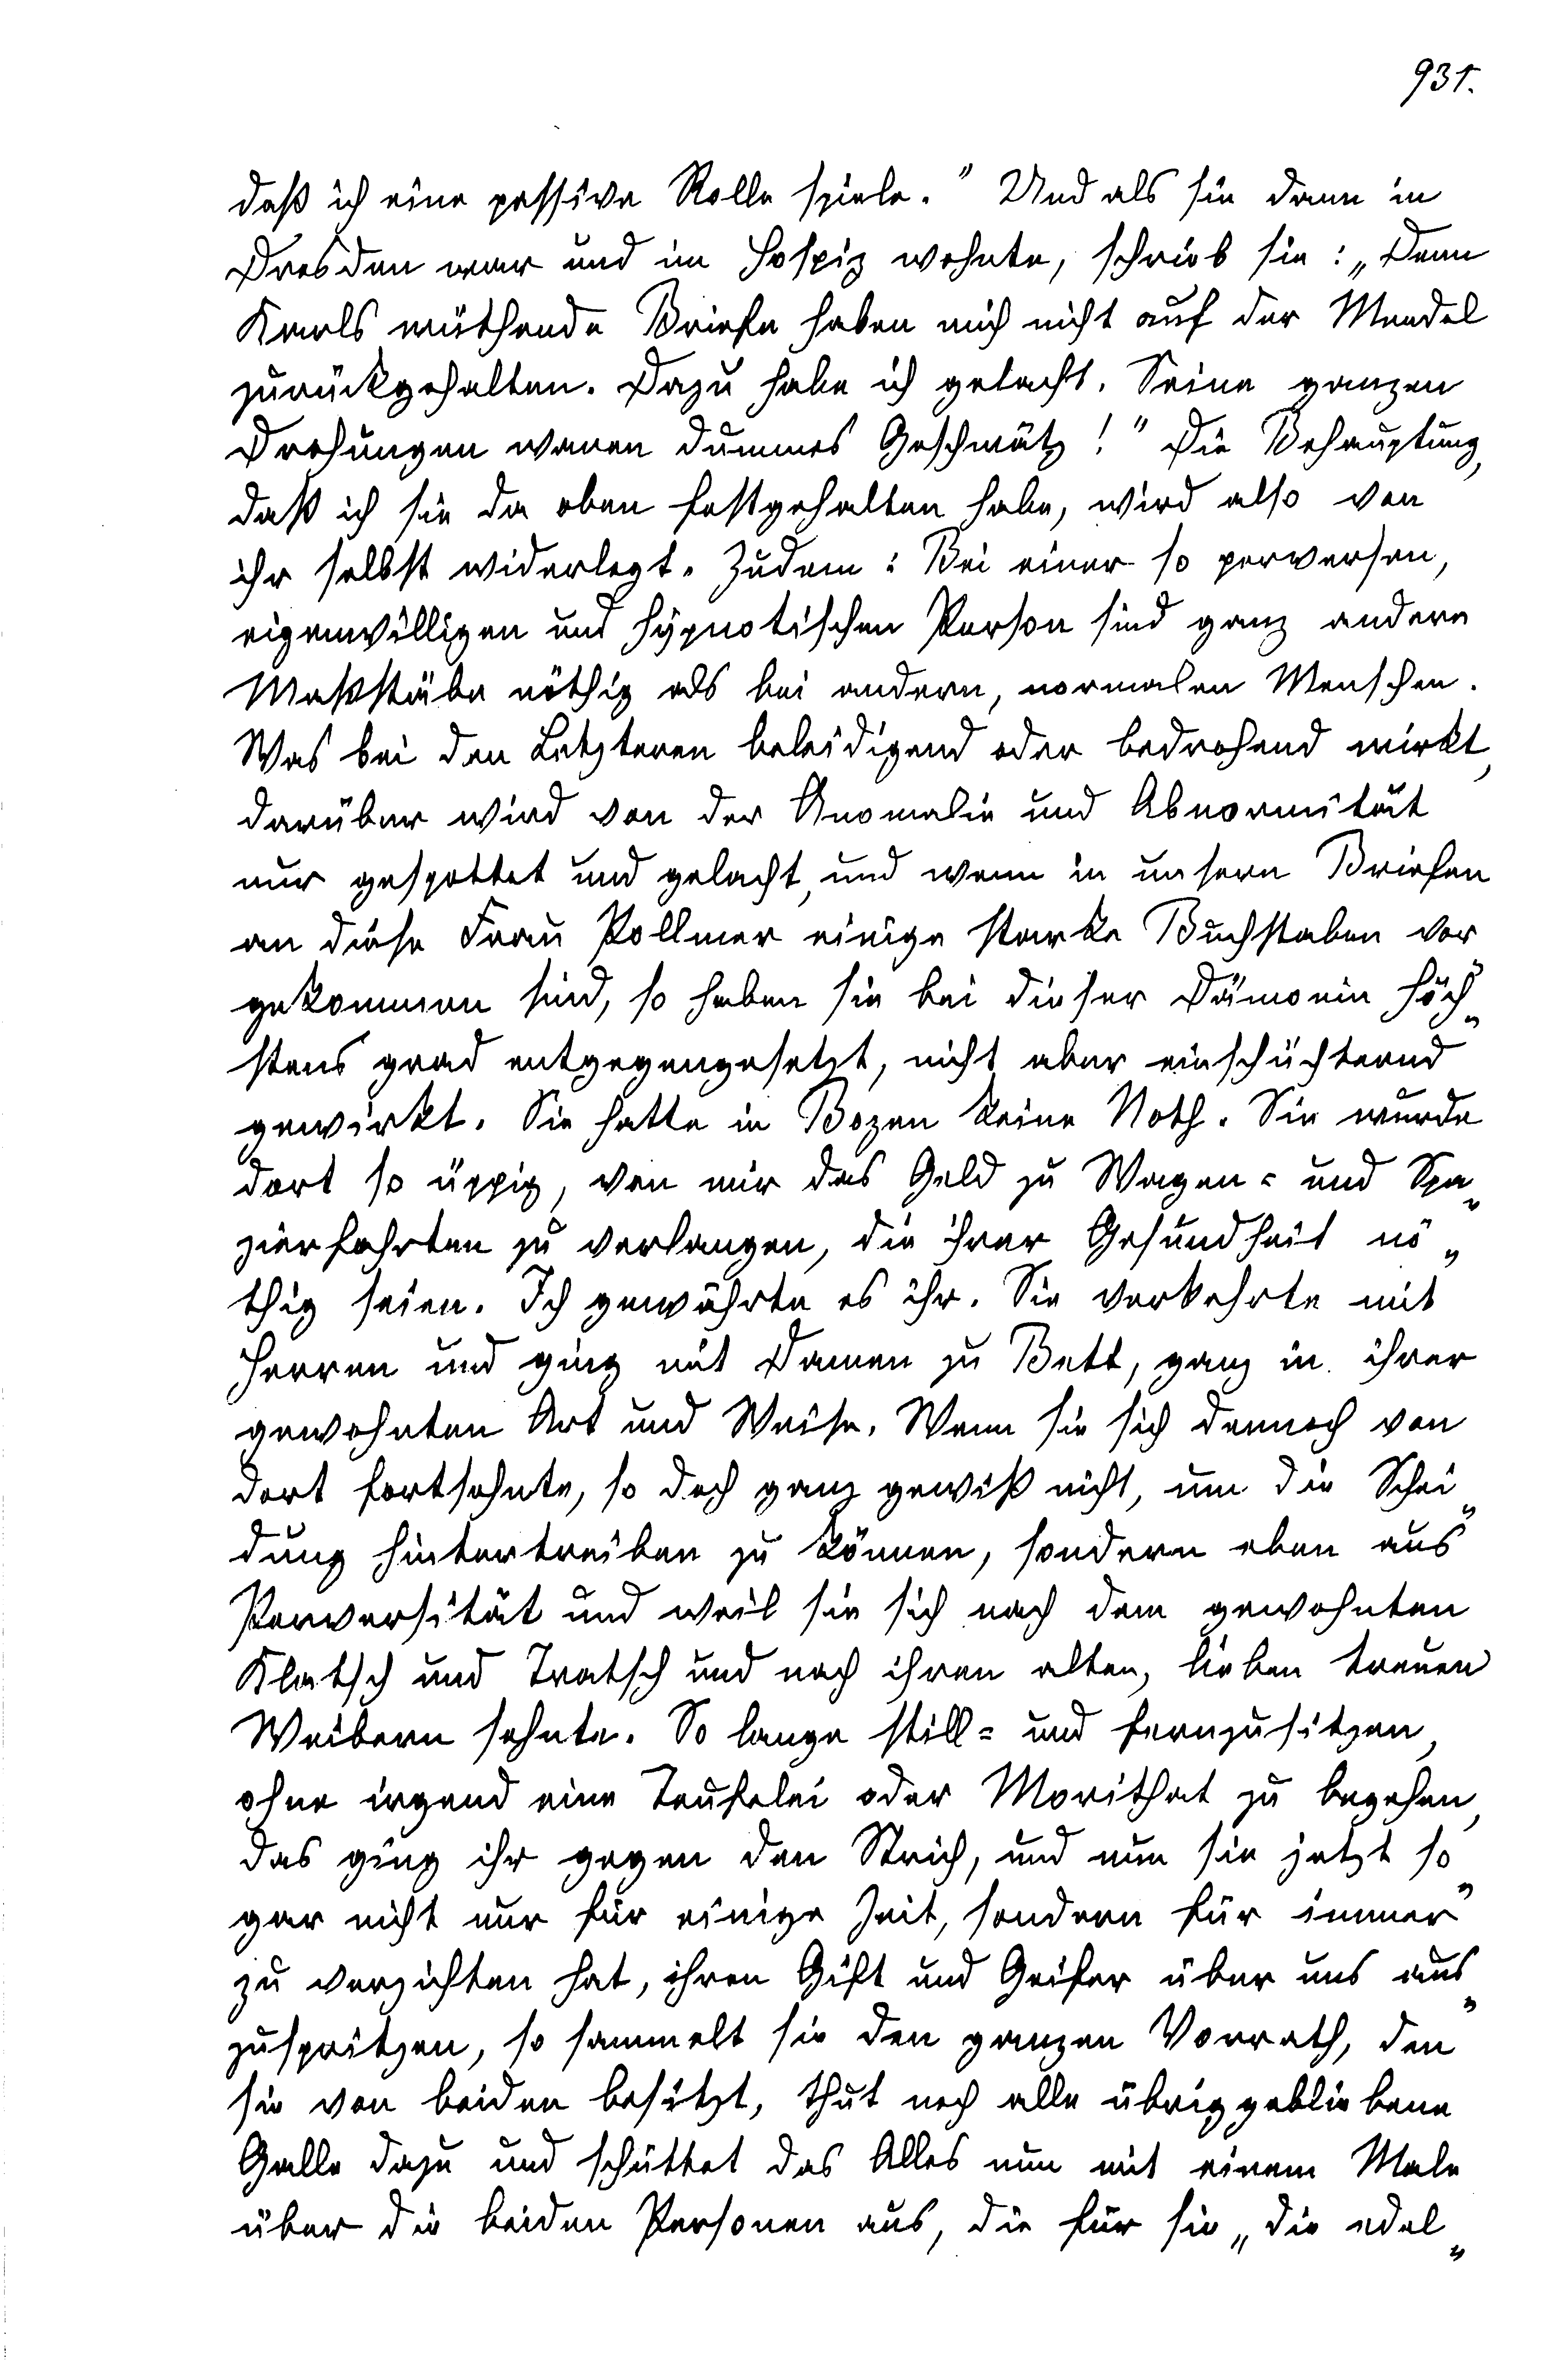 931.
daß ich eine passive Rolle spiele.“ Und als sie dann in
Dresden war und im Hospiz wohnte, schrieb sie: „Denn
Karls wüthende Briefe haben mich nicht auf der Mendel
zurückgehalten. Dazu habe ich gelacht. Seine ganzen
Drohungen waren dummes Geschwätz!“ Die Behauptung,
daß ich sie da oben festgehalten habe, wird also von
ihr selbst widerlegt. Zudem: Bei einer so perversen,
eigenwilligen und hypnotischen Person sind ganz andere
Maßstäbe nöthig als bei andern, normalen Menschen.
Was bei den Letzteren beleidigend oder bedrohend wirkt,
darüber wird von der Anomalie und Abnormität
nur gespottet und gelacht, und wenn in unsern Briefen
an diese Frau Pollmer einige starke Buchstaben vor„
gekommen sind, so haben sie bei dieser Dämonin höch„
stens grad entgegengesetzt, nicht aber einschüchternd
gewirkt. Sie hatte in Bozen keine Noth. Sie wurde
dort so üppig, von mir das Geld zu Wagen= und Spa„
zierfahrten zu verlangen, die ihrer Gesundheit nö„
thig seien. Ich gewährte es ihr. Sie verkehrte mit
Herren und ging mit Damen zu Bett, ganz in ihrer
gewohnten Art und Weise. Wenn sie sich dennoch von
dort fortsehnte, so doch ganz gewiß nicht, um die Schei„
dung hintertreiben zu können, sondern eben aus
Perversität und weil sie sich nach dem gewohnten
Klatsch und Tratsch und nach ihren alten, lieben treuen
Weibern sehnte. So lange still= und fernzusitzen,
ohne irgend eine Teufelei oder Morithat zu begehen,
das ging ihr gegen den Strich, und nun sie jetzt so„
gar nicht nur für einige Zeit, sondern für immer
zu verzichten hat, ihren Gift und Geifer über uns aus„
zuspritzen, so sammelt sie den ganzen Vorrath, den
sie von beiden besitzt, thut noch alle übriggebliebene
Galle dazu und schüttet das Alles nun mit einem Male
über die beiden Personen aus, die für sie „die edel„